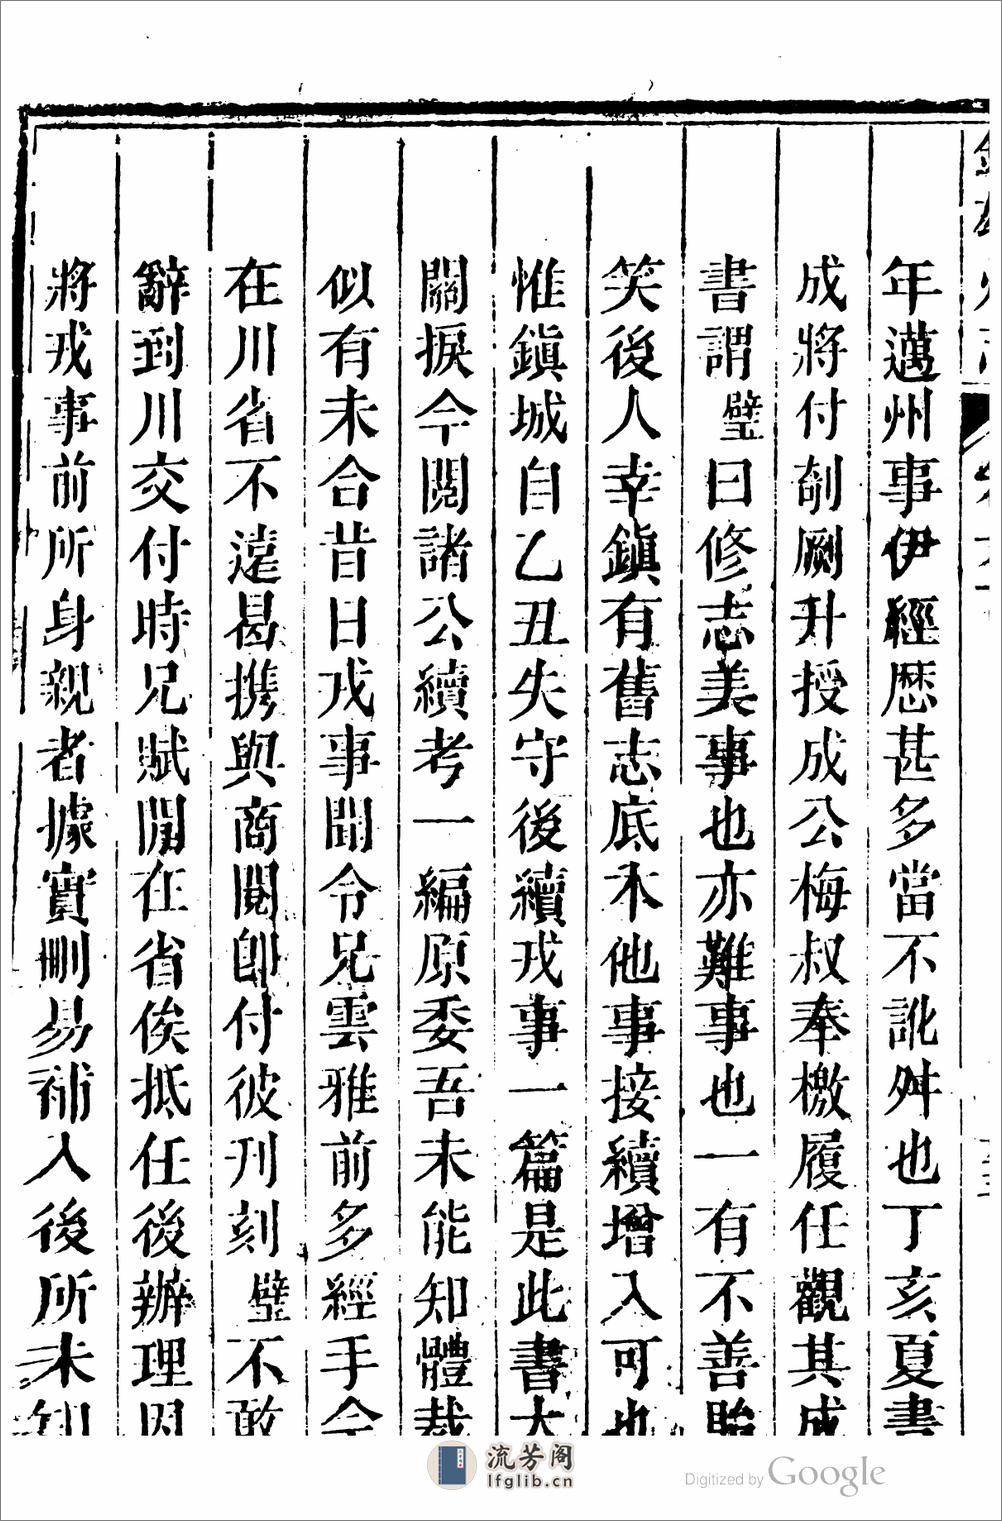 年邁州事伊經歷甚多當不訛舛也丁亥夏書
成將付剞劂升授成公梅叔奉檄履任觀其成
書謂璧曰修志美事也亦難事也一有不善貽
笑後人幸鎮有舊志底本他事接續增入可也
惟鎮城自乙丑失守後續戎事一篇是此書大
關捩今閱諸公續考一編原委吾未能知體裁
似有未合昔日戎事聞令兄雲雅前多經手令
在川省不遠曷携與商閱卽付彼刊刻璧不敢
辭到川交付時兄賦閒在省俟抵任後辦理因
將戎事前所身親者據實刪易補入後所未知
流芳阁
lfglib.cn
Digitized by Google